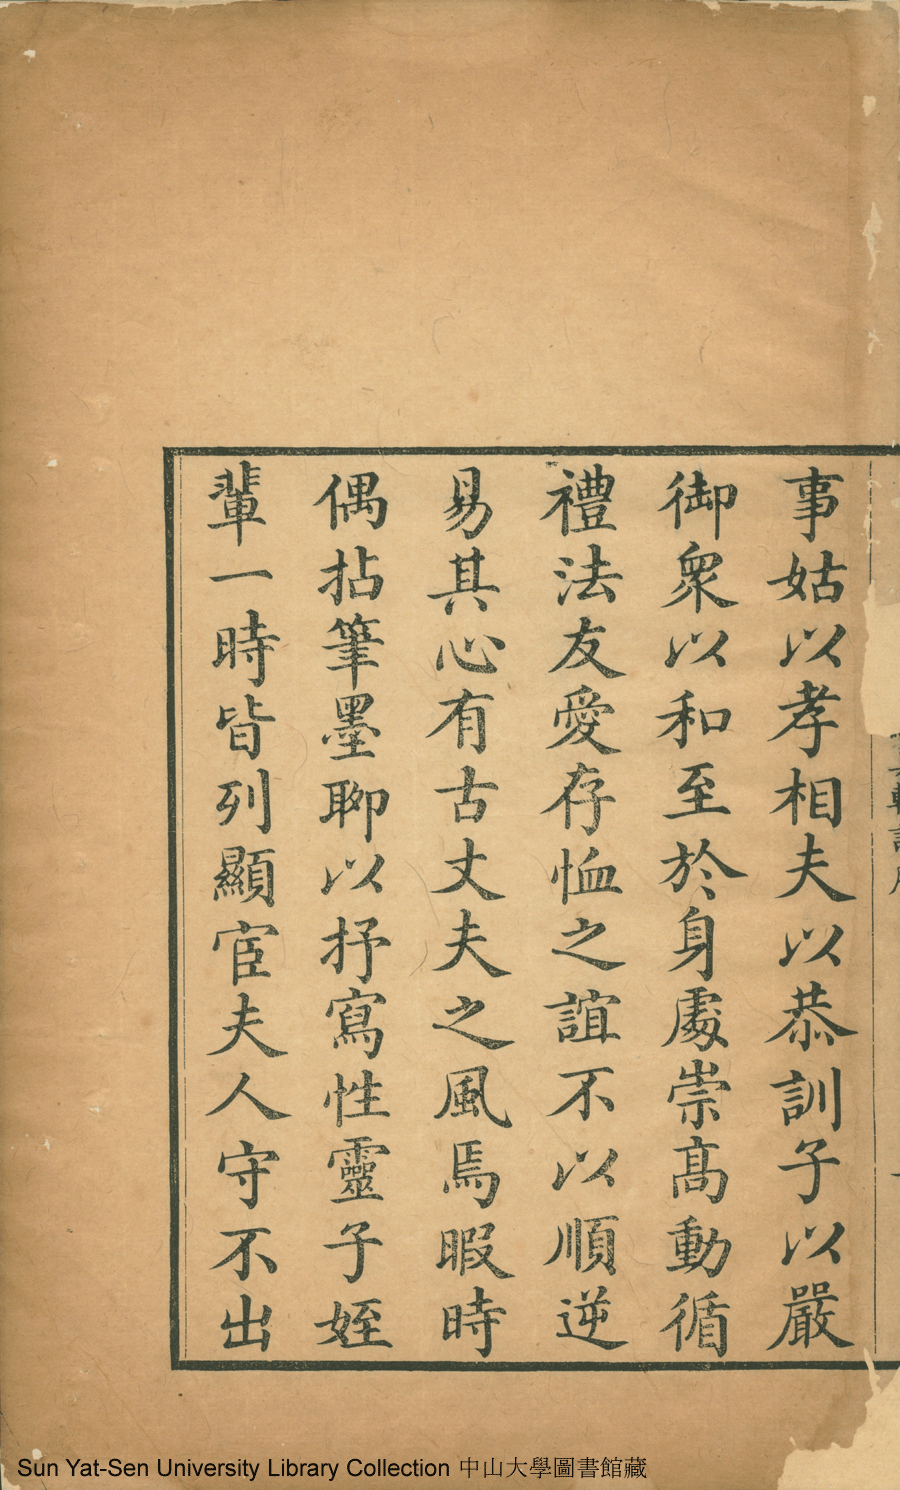 事姑以孝相夫以恭訓子以嚴
御衆以和至於身處崇高動循
禮法友愛存恤之誼不以順逆
易其心有古丈夫之風焉暇時
偶拈筆墨聊以抒寫性靈子姪
輩一時皆列顯宦夫人守不出
Sun Yat-Sen University Library Collection 中山大學圖書館藏